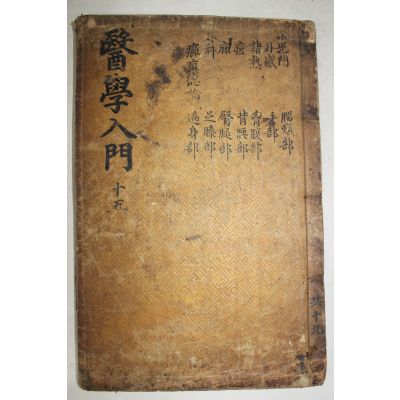 醫學入門
十五
小兒門
外感
諸熱
痘
麻
外科
癰疽總論
腦頸部
手部
胷腹部
背腰部
臀腿部
足膝部
遍身部
共十九